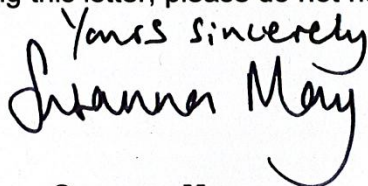 ng this letter, please do not h
Yours sincerely
Susanna May